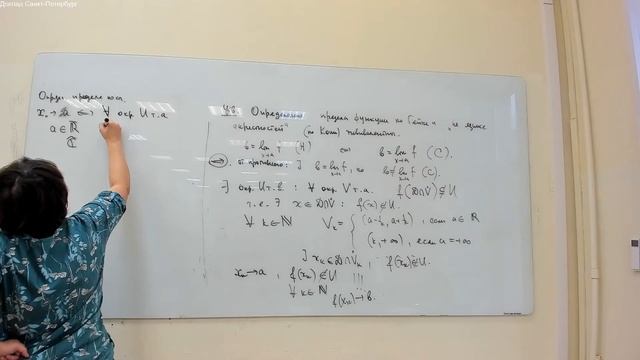 Доклад Санкт-Петербург
Опред. предела посл.
xₙ→a ⇔ ∀ окр. U т. a
a∈ℝ̄
ℂ̄
Определения предела функции по Гейне и на языке
окрестностей (по Коши) эквивалентны.
b = lim f (H) ⇔ b = lim f (C).
x→a x→a
от противного: ∃ b = lim f, b ≠ lim f (C).
x→a x→a
∃ окр. U т. b : ∀ окр. V т. a. f(D∩V̇) ⊄ U
т.е. ∃ x∈D∩V̇ : f(x) ∉ U.
∀ k∈ℕ Vₖ = { (a-1/k, a+1/k), если a∈ℝ
(k, +∞), если a=+∞
∃ xₖ∈D∩V̇ₖ, f(xₖ)∉U.
xₖ→a, f(xₖ)∉U !!!
∀ k∈ℕ
f(xₖ)→b.